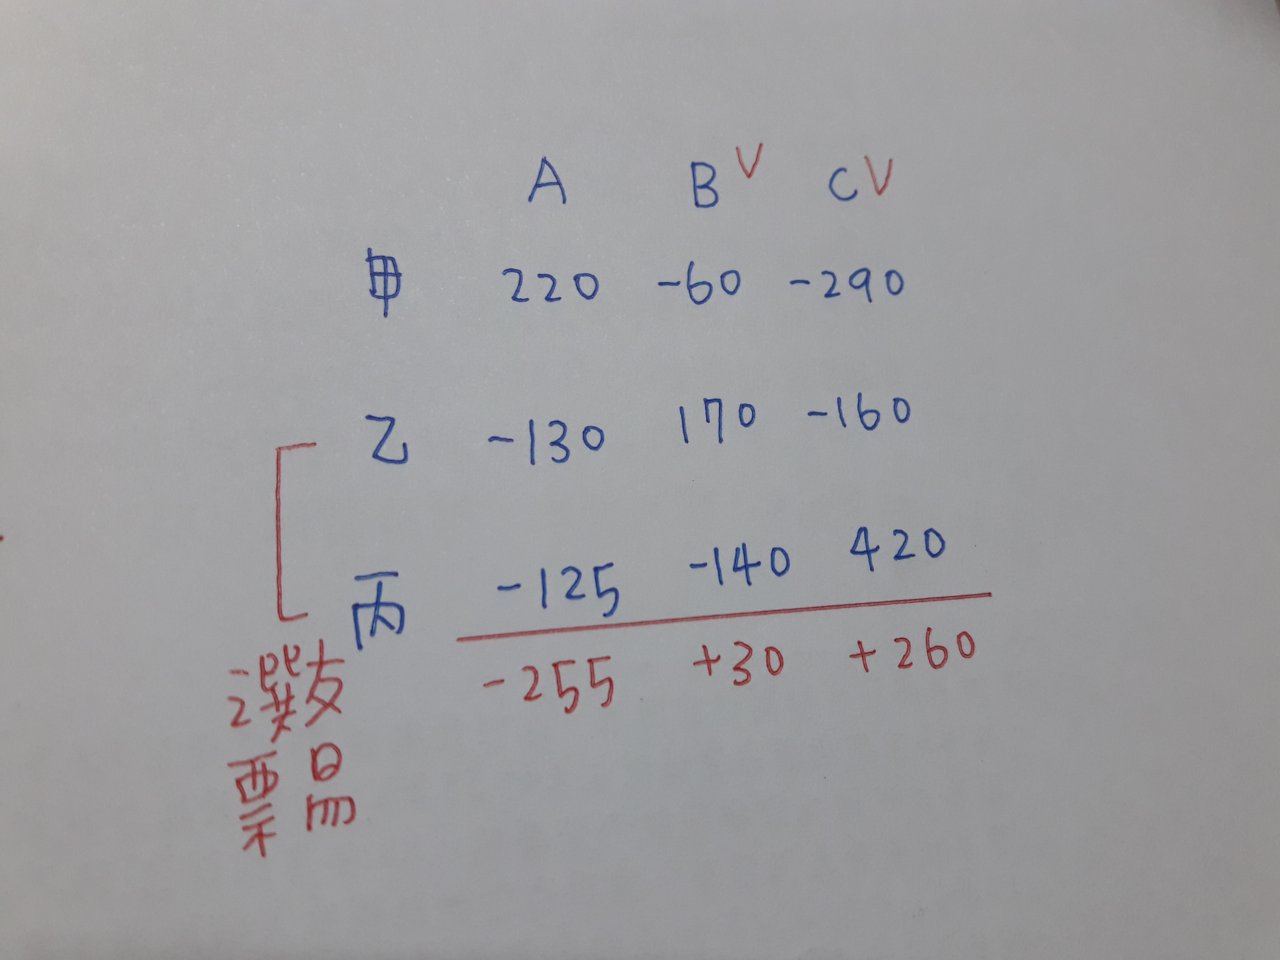 A B V C V
甲 220 -60 -290
乙 -130 170 -160
丙 -125 -140 420
-255 +30 +260
選 交
票 易